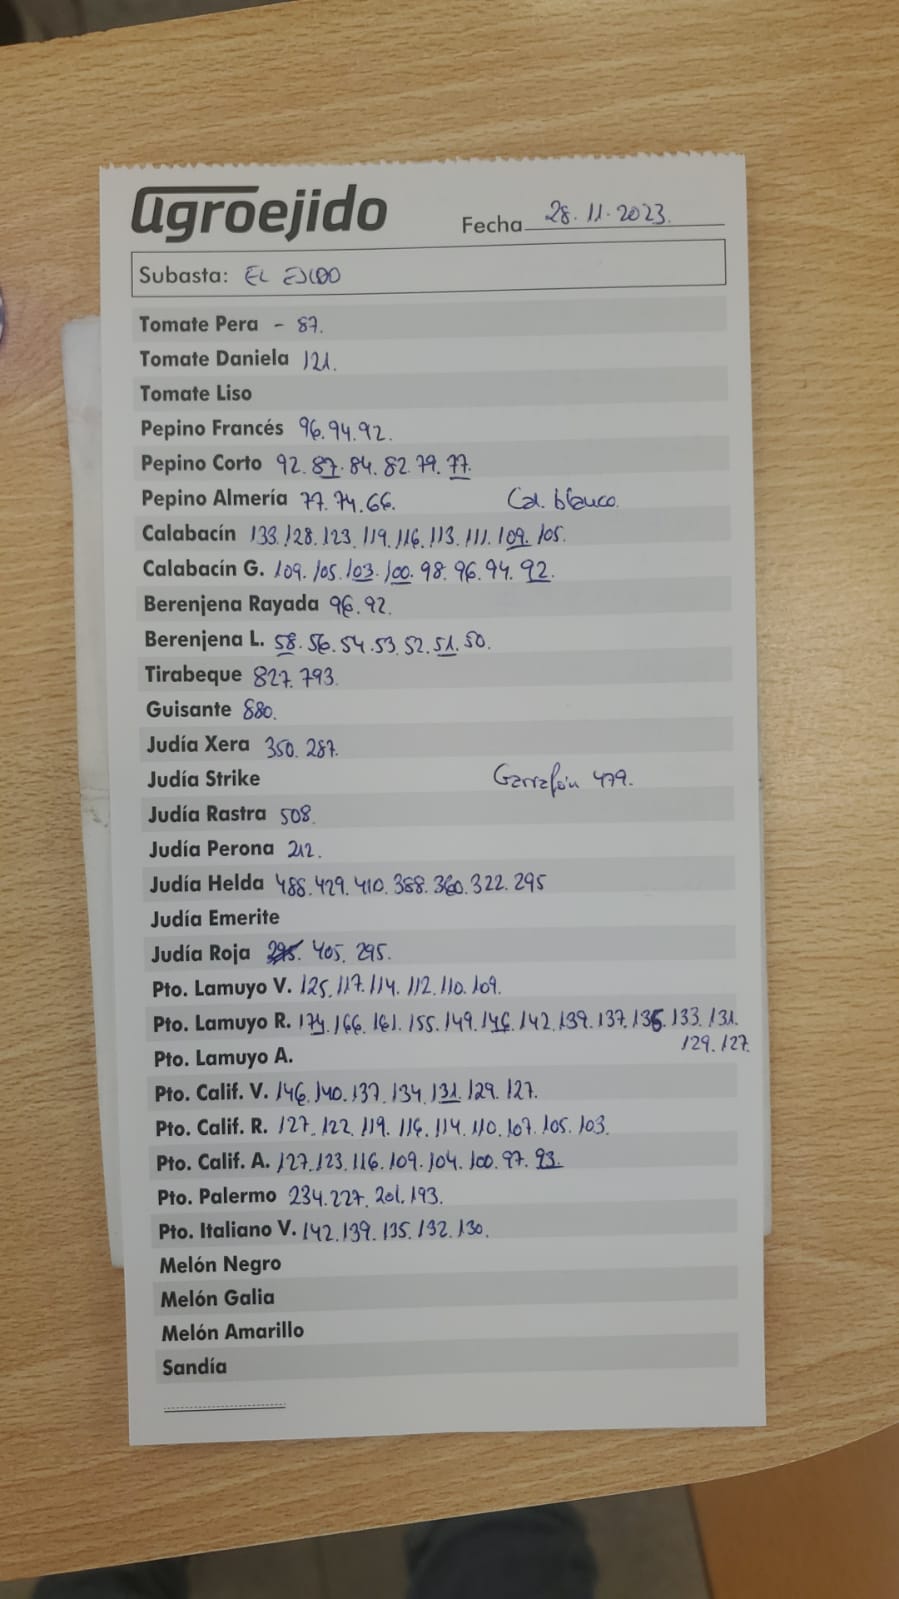 agroejido
Fecha 28.11.2023.
Subasta: EL EJIDO
Tomate Pera - 87.
Tomate Daniela 121.
Tomate Liso
Pepino Francés 96.94.92.
Pepino Corto 92.87.84.82.79.77.
Pepino Almería 77.74.66. Cal. blanco.
Calabacín 133.128.123.119.116.113.111.109.105.
Calabacín G. 109.105.103.100.98.96.94.92.
Berenjena Rayada 96.92.
Berenjena L. 58.56.54.53.52.51.50.
Tirabeque 827.793.
Guisante 880.
Judía Xera 350.287.
Judía Strike Garrafón 479.
Judía Rastra 508.
Judía Perona 212.
Judía Helda 488.429.410.388.360.322.295
Judía Emerite
Judía Roja 405.295.
Pto. Lamuyo V. 125.117.114.112.110.109.
Pto. Lamuyo R. 174.166.161.155.149.146.142.139.137.135.133.131.
129.127.
Pto. Lamuyo A.
Pto. Calif. V. 146.140.137.134.131.129.127.
Pto. Calif. R. 127.122.119.116.114.110.107.105.103.
Pto. Calif. A. 127.123.116.109.104.100.97.93.
Pto. Palermo 234.227.201.193.
Pto. Italiano V. 142.139.135.132.130.
Melón Negro
Melón Galia
Melón Amarillo
Sandía